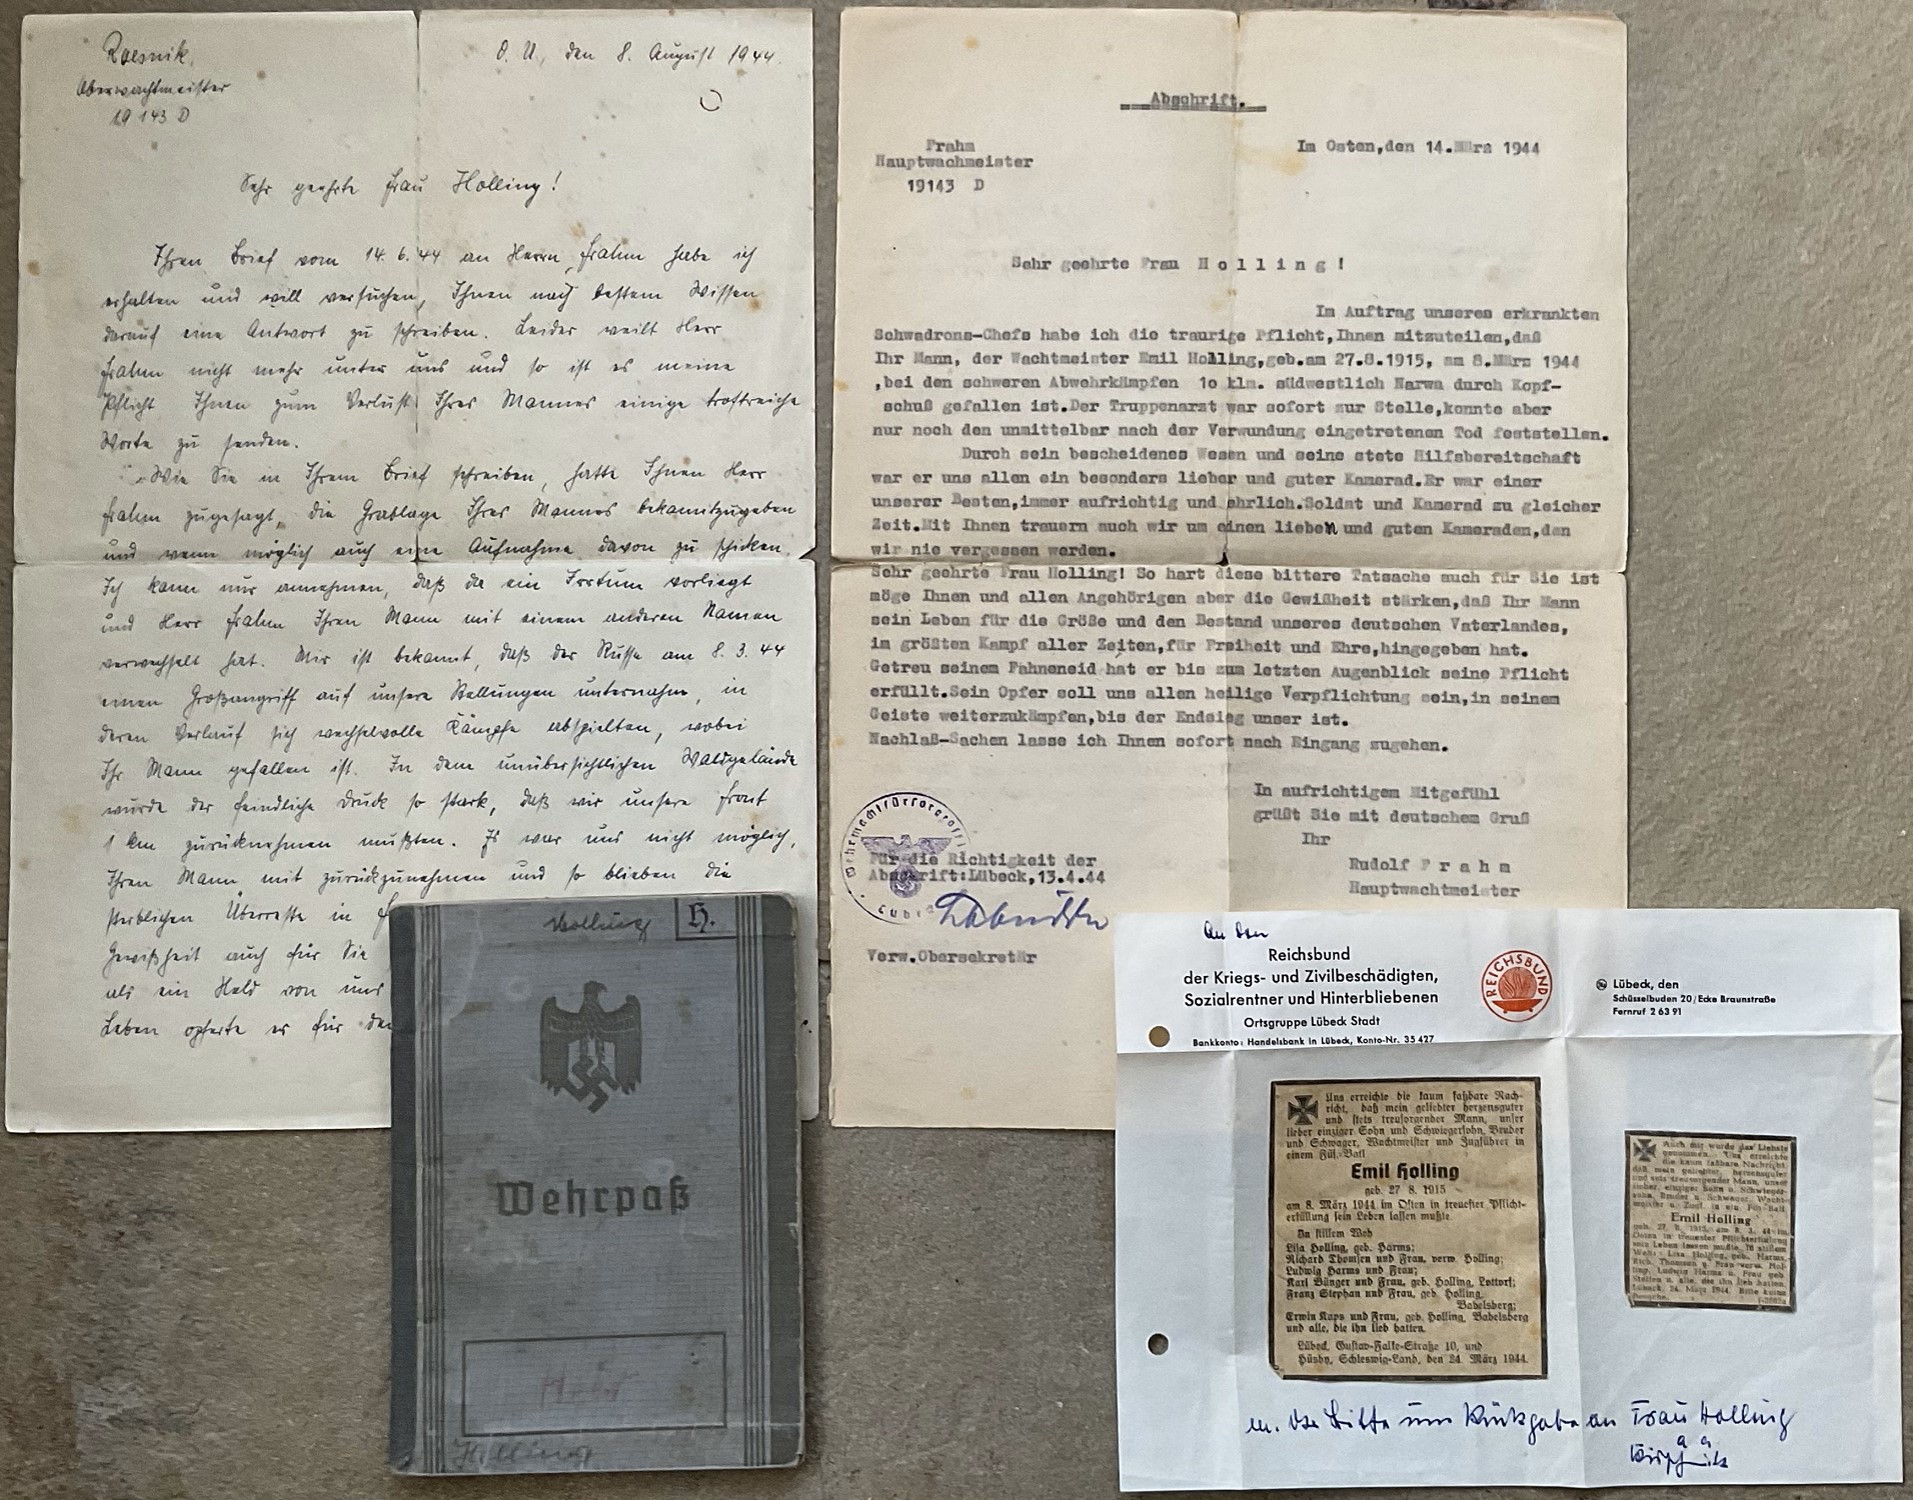 Roesnik
Oberwachtmeister
19 143 D
O. U., den 8. August 1944.
Sehr geehrte Frau Holling!
Ihren Brief vom 14. 6. 44 an Herrn Frahm habe ich
erhalten und will versuchen, Ihnen nach bestem Wissen
darauf eine Antwort zu schreiben. Leider weilt Herr
Frahm nicht mehr unter uns und so ist es meine
Pflicht Ihnen zum Verlust Ihres Mannes einige trostreiche
Worte zu senden.
Wie Sie in Ihrem Brief schreiben, hatte Ihnen Herr
Frahm zugesagt, die Grablage Ihres Mannes bekanntzugeben
und wenn möglich auch eine Aufnahme davon zu schicken.
Ich kann nur annehmen, daß da ein Irrtum vorliegt
und Herr Frahm Ihren Mann mit einem anderen Namen
verwechselt hat. Mir ist bekannt, daß der Russe am 8. 3. 44
einen Großangriff auf unsere Stellungen unternahm, in
deren Verlauf sich wechselvolle Kämpfe abspielten, wobei
Ihr Mann gefallen ist. In dem unübersichtlichen Waldgelände
wurde der feindliche Druck so stark, daß wir unsere Front
1 km zurücknehmen mußten. Es war uns nicht möglich,
Ihren Mann mit zurückzunehmen und so blieben die
sterblichen Überreste in
Gewißheit auch für Sie
als ein Held von uns
Leben opferte er für den
Abschrift.
Frahm
Hauptwachmeister
19143 D
Im Osten,den 14.März 1944
Sehr geehrte Frau H o l l i n g !
Im Auftrag unseres erkrankten
Schwadrons-Chefs habe ich die traurige Pflicht,Ihnen mitzuteilen,daß
Ihr Mann, der Wachtmeister Emil Holling,geb.am 27.8.1915, am 8.März 1944
,bei den schweren Abwehrkämpfen 1o klm. südwestlich Narwa durch Kopf-
schuß gefallen ist.Der Truppenarzt war sofort zur Stelle,konnte aber
nur noch den unmittelbar nach der Verwundung eingetretenen Tod feststellen.
Durch sein bescheidenes Wesen und seine stete Hilfsbereitschaft
war er uns allen ein besonders lieber und guter Kamerad.Er war einer
unserer Besten,immer aufrichtig und ehrlich.Soldat und Kamerad zu gleicher
Zeit.Mit Ihnen trauern auch wir um einen lieben und guten Kameraden,den
wir nie vergessen werden.
Sehr geehrte Frau Holling! So hart diese bittere Tatsache auch für Sie ist
möge Ihnen und allen Angehörigen aber die Gewißheit stärken,daß Ihr Mann
sein Leben für die Größe und den Bestand unseres deutschen Vaterlandes,
im größten Kampf aller Zeiten,für Freiheit und Ehre,hingegeben hat.
Getreu seinem Fahneneid hat er bis zum letzten Augenblick seine Pflicht
erfüllt.Sein Opfer soll uns allen heilige Verpflichtung sein,in seinem
Geiste weiterzukämpfen,bis der Endsieg unser ist.
Nachlaß-Sachen lasse ich Ihnen sofort nach Eingang zugehen.
In aufrichtigem Mitgefühl
grüßt Sie mit deutschem Gruß
Ihr
Rudolf F r a h m
Hauptwachtmeister
Für die Richtigkeit der
Abschrift:Lübeck,13.4.44
Verw.Obersekretär
Holling
H.
Wehrpaß
Holling
An den
Reichsbund
der Kriegs- und Zivilbeschädigten,
Sozialrentner und Hinterbliebenen
Ortsgruppe Lübeck Stadt
Bankkonto: Handelsbank in Lübeck, Konto-Nr. 35 427
REICHSBUND
Lübeck, den
Schüsselbuden 20/Ecke Braunstraße
Fernruf 2 63 91
Uns erreichte die kaum faßbare Nach-
richt, daß mein geliebter herzensguter
und stets treusorgender Mann, unser
lieber einziger Sohn und Schwiegersohn, Bruder
und Schwager, Wachtmeister und Zugführer in
einem Füs.-Batl
Emil Holling
geb. 27 8. 1915
am 8. März 1944 im Osten in treuester Pflicht-
erfüllung sein Leben lassen mußte.
In stillem Weh
Lisa Holling, geb. Harms;
Richard Thomsen und Frau, verw. Holling;
Ludwig Harms und Frau;
Karl Bünger und Frau, geb. Holling, Lottorf;
Franz Stephan und Frau, geb. Holling,
Babelsberg;
Erwin Kaps und Frau, geb. Holling, Babelsberg
und alle, die ihn lieb hatten.
Lübeck, Gustav-Falke-Straße 10, und
Hüsby, Schleswig-Land, den 24. März 1944.
Auch mir wurde das Liebste
genommen. Uns erreichte
die kaum faßbare Nachricht,
daß mein geliebter, herzensguter
und stets treusorgender Mann, unser
lieber, einziger Sohn u. Schwieger-
sohn, Bruder u. Schwager, Wacht-
meister u. Zugf. in ein. Füs.-Batl.
Emil Holling
geb. 27. 8. 1915, am 8. 3. 44 im
Osten in treuester Pflichterfüllung
sein Leben lassen mußte. In stillem
Weh: Lisa Holling, geb. Harms,
Rich. Thomsen u. Frau verw. Hol-
ling, Ludwig Harms u. Frau geb.
u. alle, die ihn lieb hatten.
Lübeck, 24. März 1944. Bitte keine
m. der Bitte um Rückgabe an Frau Holling